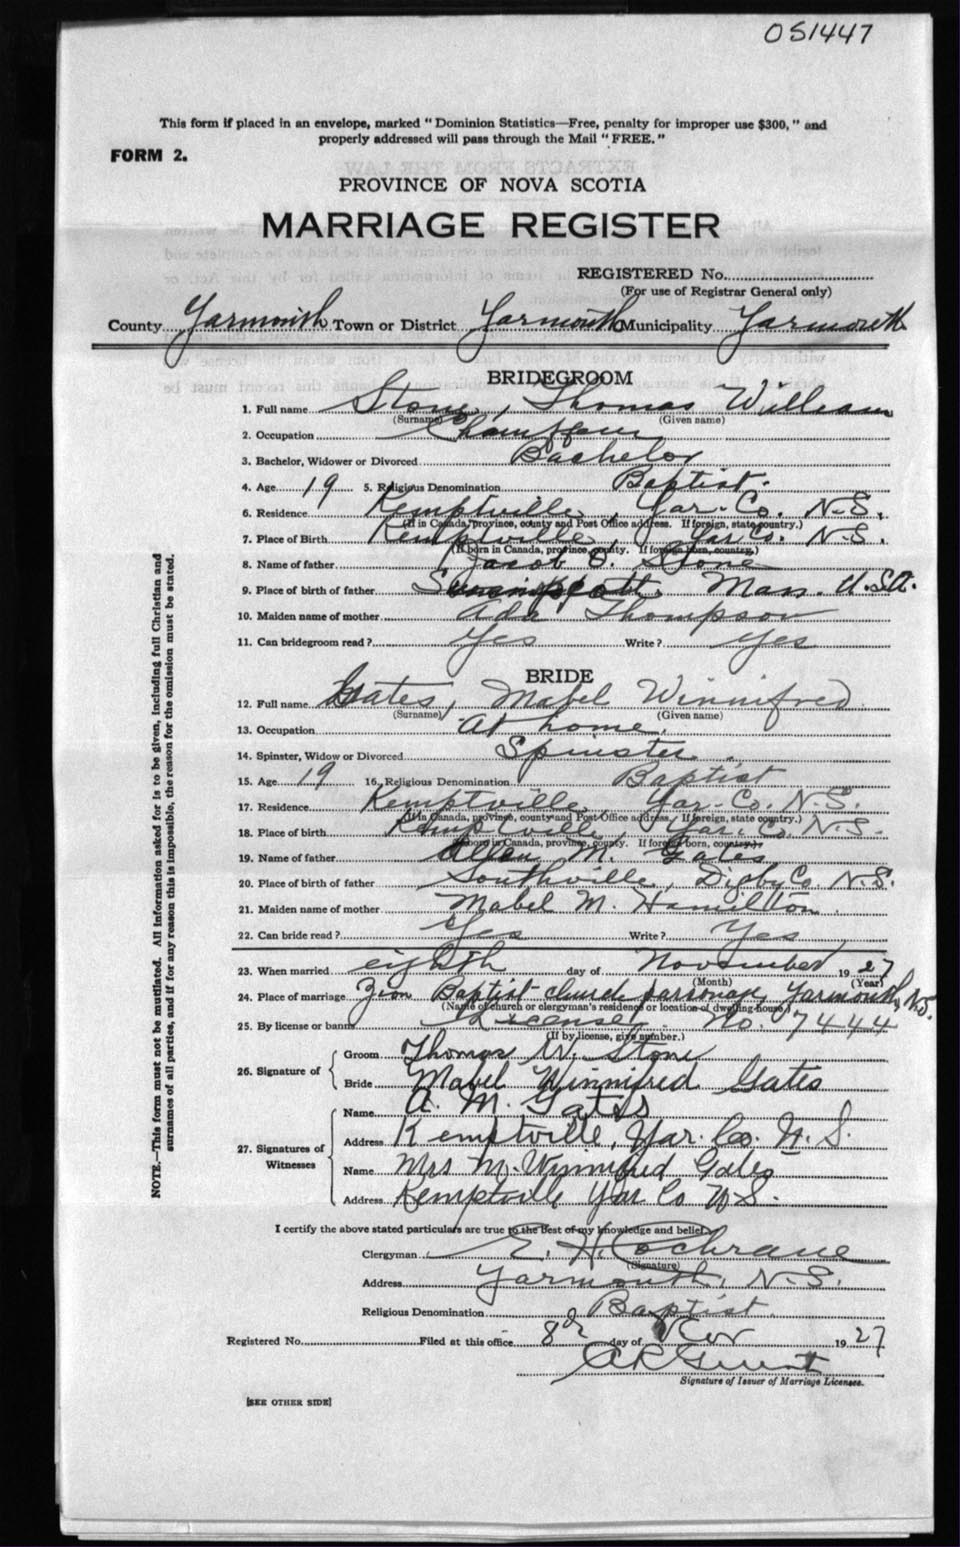 051447
This form if placed in an envelope, marked "Dominion Statistics—Free, penalty for improper use $300," and
properly addressed will pass through the Mail "FREE."
FORM 2.
PROVINCE OF NOVA SCOTIA
MARRIAGE REGISTER
REGISTERED No.
(For use of Registrar General only)
County Yarmouth Town or District Yarmouth Municipality Yarmouth
BRIDEGROOM
1. Full name Stone, Thomas William
(Surname) (Given name)
2. Occupation Chauffeur
3. Bachelor, Widower or Divorced Bachelor
4. Age 19 5. Religious Denomination Baptist.
6. Residence Kemptville, Yar. Co. N.S.
(If in Canada, province, county and Post Office address. If foreign, state country.)
7. Place of Birth Kemptville, Yar Co. N.S.
(If born in Canada, province, county. If foreign born, country.)
8. Name of father Jacob O. Stone
9. Place of birth of father Swampscott, Mass. U.S.A.
10. Maiden name of mother Ada Thompson
11. Can bridegroom read? Yes Write? Yes
BRIDE
12. Full name Gates, Mabel Winnifred
(Surname) (Given name)
13. Occupation At home.
14. Spinster, Widow or Divorced Spinster.
15. Age 19 16. Religious Denomination Baptist
17. Residence Kemptville, Yar. Co. N.S.
(If in Canada, province, county and Post Office address. If foreign, state country.)
18. Place of birth Kemptville, Yar. Co. N.S.
(If born in Canada, province, county. If foreign born, country.)
19. Name of father Allen M. Gates
20. Place of birth of father Southville, Digby Co. N.S.
21. Maiden name of mother Mabel M. Hamilton.
22. Can bride read? Yes Write? Yes
23. When married eighth day of November 1927
(Month) (Year)
24. Place of marriage Zion Baptist church parsonage, Yarmouth, N.S.
(Name of church or clergyman's residence or location of dwelling-house)
25. By license or banns License. No. 7444
(If by license, give number.)
26. Signature of
Groom Thomas W. Stone
Bride Mabel Winnifred Gates
27. Signatures of Witnesses
Name A. M. Gates
Address Kemptville, Yar. Co. N. S.
Name Mrs M. Wynnifred Gates
Address Kemptville Yar Co N S.
I certify the above stated particulars are true to the best of my knowledge and belief.
Clergyman E. H. Cochrane
(Signature)
Address Yarmouth, N.S.
Religious Denomination Baptist.
Registered No. Filed at this office 8th day of Nov 1927
Signature of Issuer of Marriage Licenses.
[SEE OTHER SIDE]
NOTE.—This form must not be mutilated. All information asked for is to be given, including full Christian and
surnames of all parties, and if for any reason this is impossible, the reason for the omission must be stated.